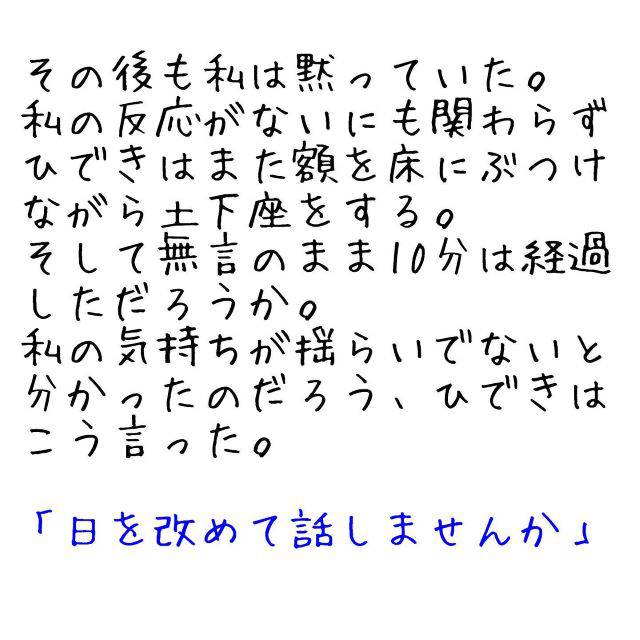 その後も私は黙っていた。
私の反応がないにも関わらず
ひできはまた額を床にぶつけ
ながら土下座をする。
そして無言のまま10分は経過
しただろうか。
私の気持ちが揺らいでないと
分かったのだろう、ひできは
こう言った。
「日を改めて話しませんか」